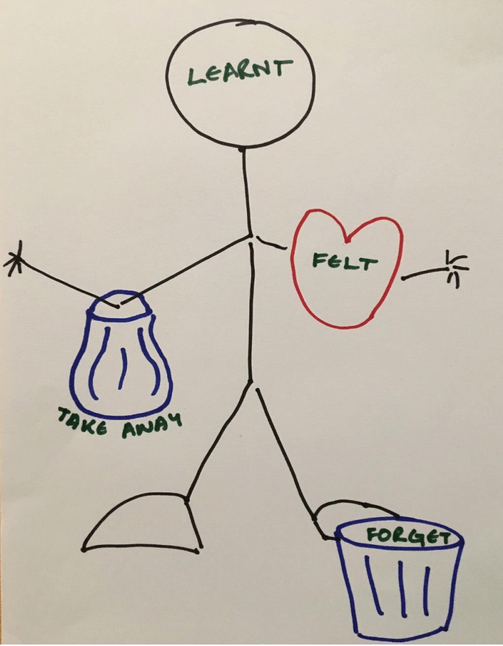 LEARNT
FELT
TAKE AWAY
FORGET